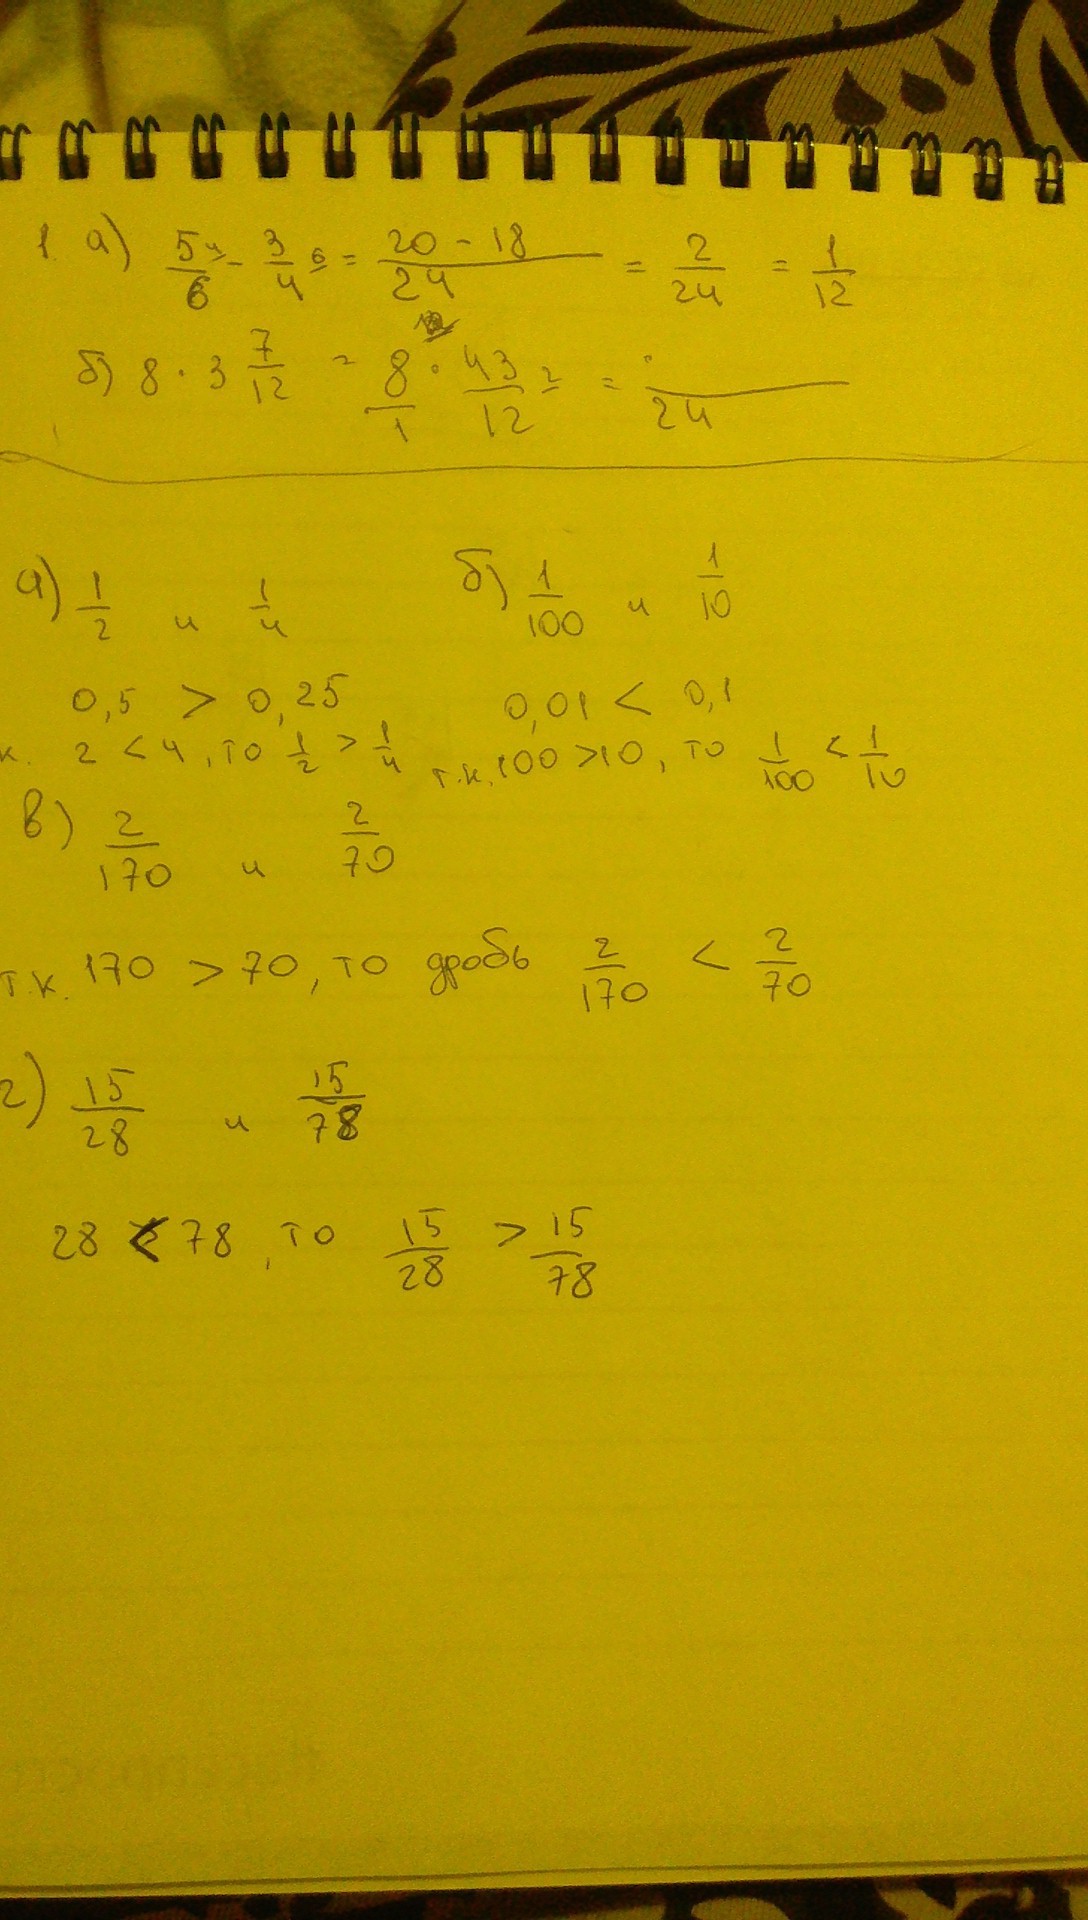 1. а) 5/6 4 - 3/4 6 = 20 - 18/24 = 2/24 = 1/12
б) 8 · 3 7/12 = 8/1 · 43/12 2 = /24
а) 1/2 и 1/4 б) 1/100 и 1/10
0,5 > 0,25 0,01 < 0,1
к. 2 < 4, то 1/2 > 1/4 т.к. 100 > 10, то 1/100 < 1/10
в) 2/170 и 2/70
т.к. 170 > 70, то дробь 2/170 < 2/70
г) 15/28 и 15/78
28 < 78, то 15/28 > 15/78